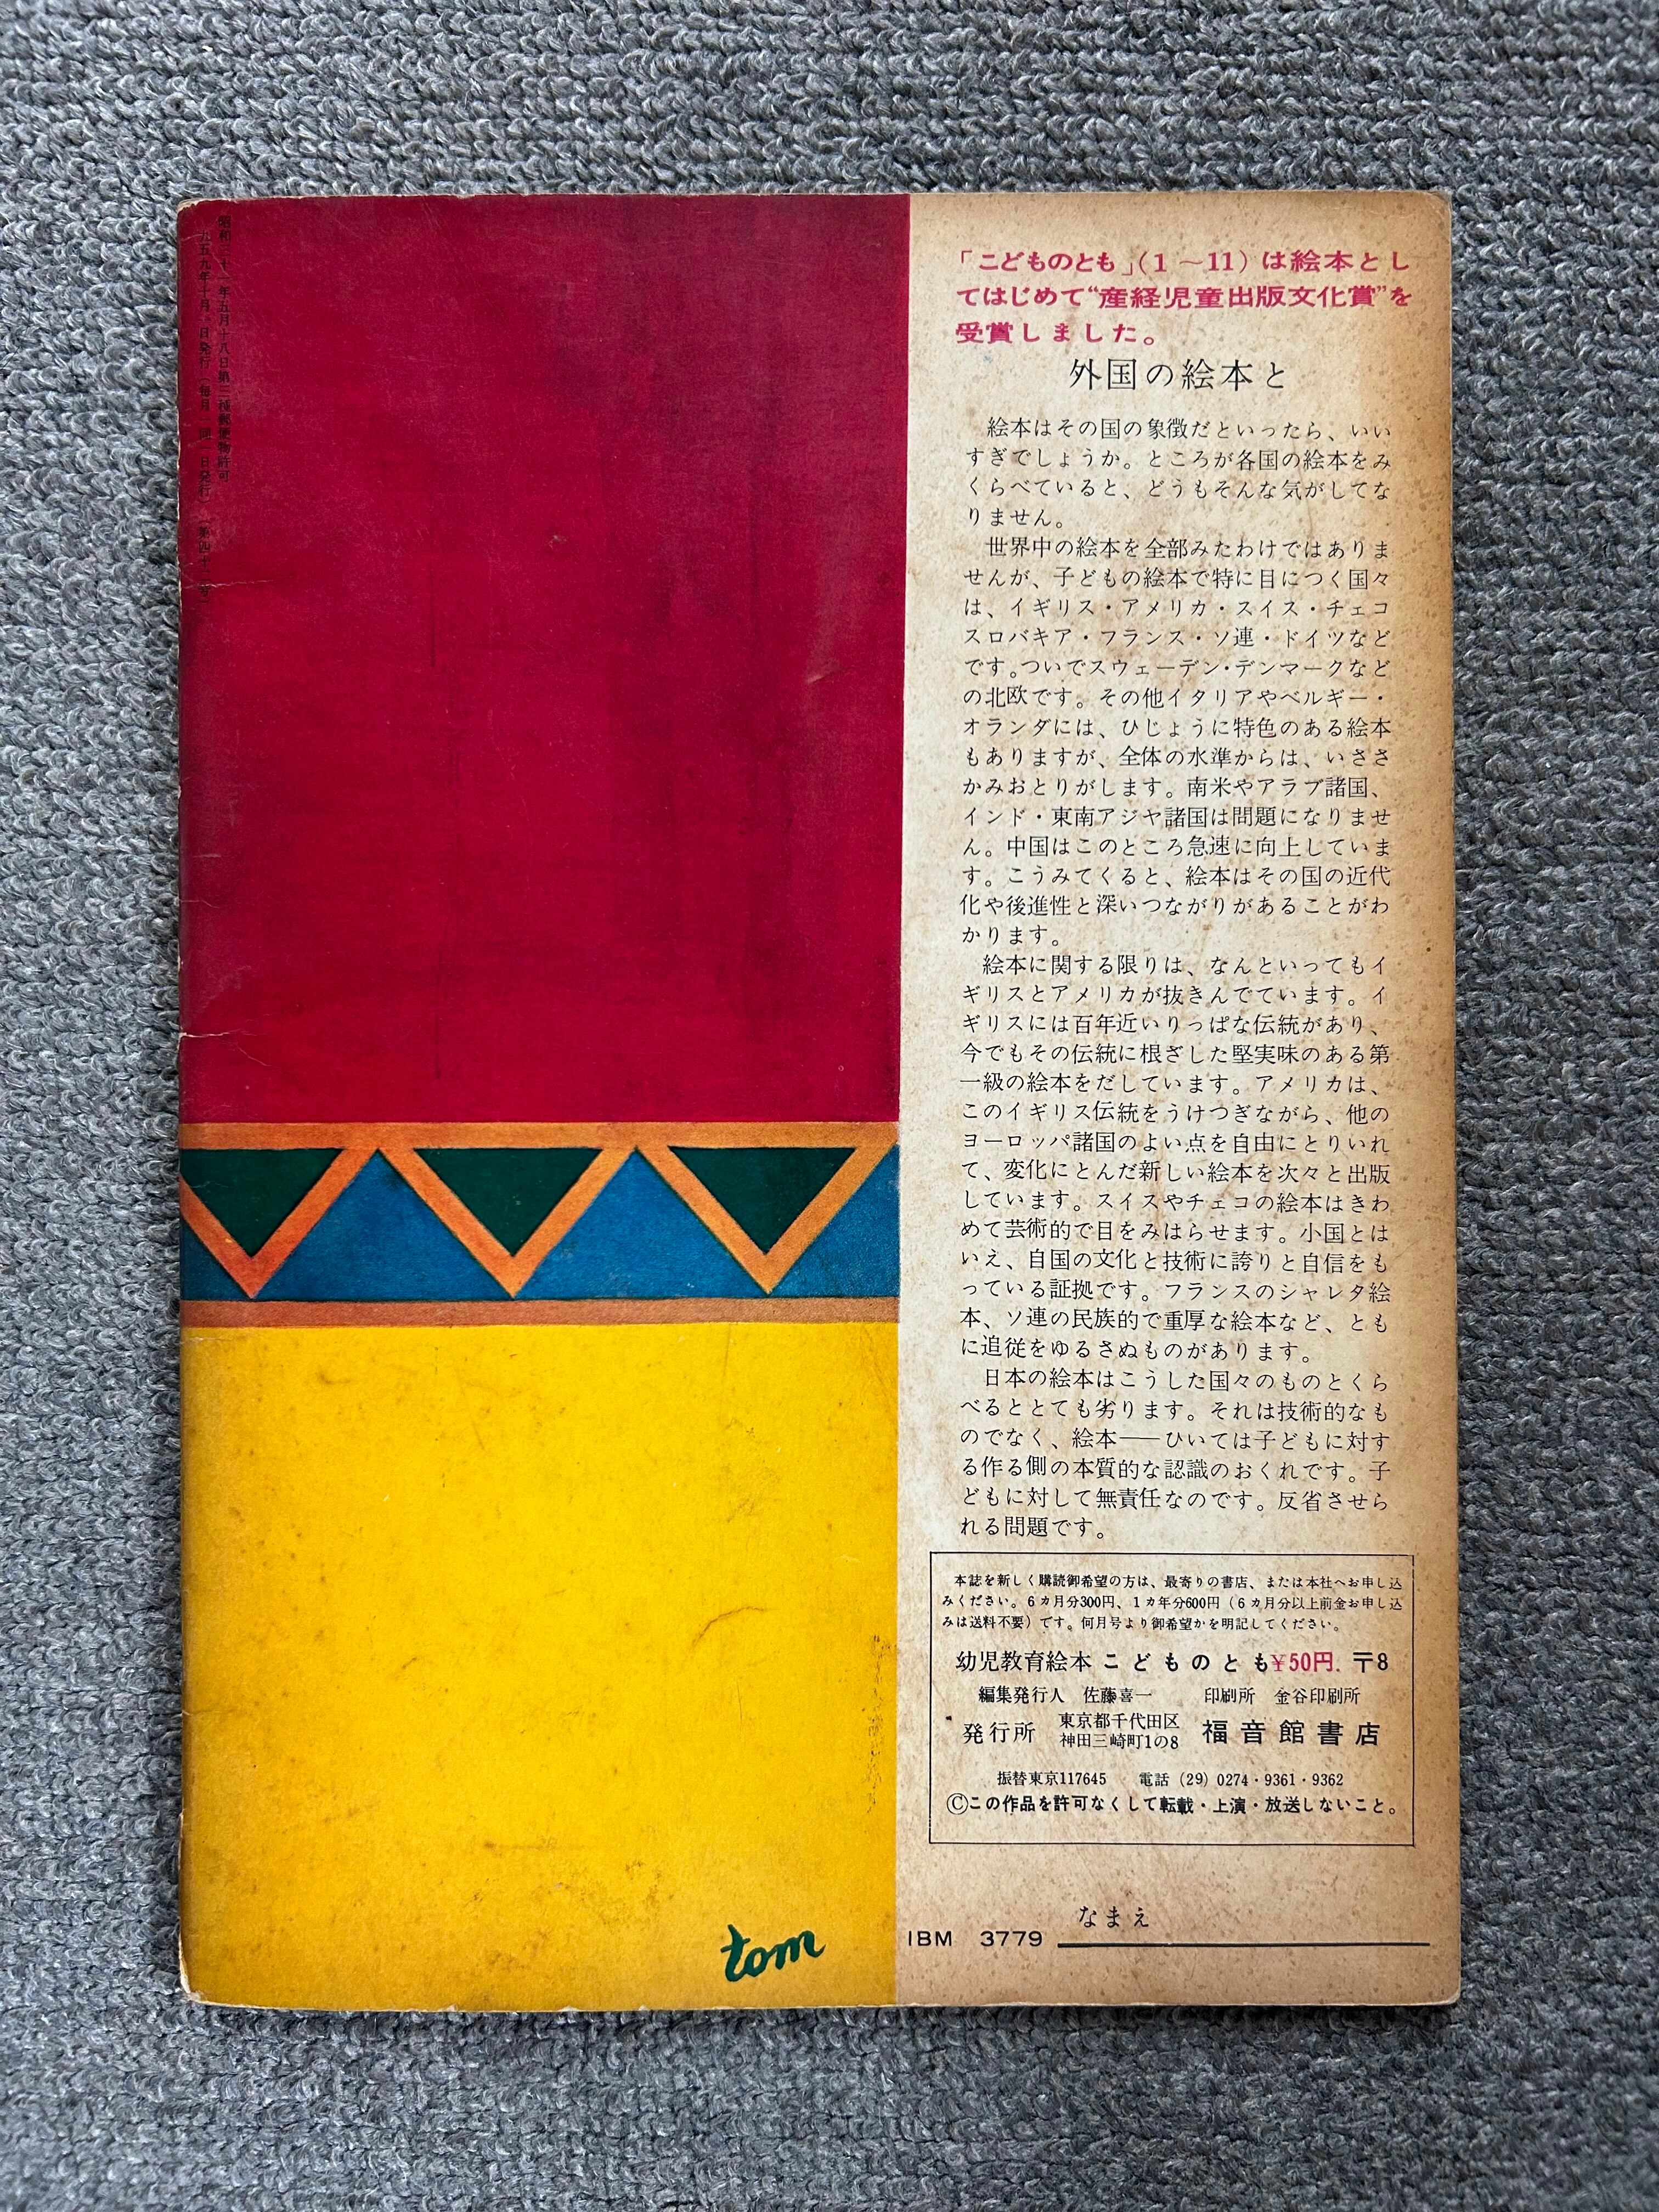 昭和三十一年五月十八日第三種郵便物許可
一九五九年十月一日発行（毎月一回一日発行）
「こどものとも」(1～11) は絵本とし
てはじめて“産経児童出版文化賞”を
受賞しました。
外国の絵本と
絵本はその国の象徴だといったら、いい
すぎでしょうか。ところが各国の絵本をみ
くらべていると、どうもそんな気がしてな
りません。
世界中の絵本を全部みたわけではありま
せんが、子どもの絵本で特に目につく国々
は、イギリス・アメリカ・スイス・チェコ
スロバキア・フランス・ソ連・ドイツなど
です。ついでスウェーデン・デンマークなど
の北欧です。その他イタリアやベルギー・
オランダには、ひじょうに特色のある絵本
もありますが、全体の水準からは、いささ
かみおとりがします。南米やアラブ諸国、
インド・東南アジヤ諸国は問題になりませ
ん。中国はこのところ急速に向上していま
す。こうみてくると、絵本はその国の近代
化や後進性と深いつながりがあることがわ
かります。
絵本に関する限りは、なんといってもイ
ギリスとアメリカが抜きんでています。イ
ギリスには百年近いりっぱな伝統があり、
今でもその伝統に根ざした堅実味のある第
一級の絵本をだしています。アメリカは、
このイギリス伝統をうけつぎながら、他の
ヨーロッパ諸国のよい点を自由にとりいれ
て、変化にとんだ新しい絵本を次々と出版
しています。スイスやチェコの絵本はきわ
めて芸術的で目をみはらせます。小国とは
いえ、自国の文化と技術に誇りと自信をも
っている証拠です。フランスのシャレタ絵
本、ソ連の民族的で重厚な絵本など、とも
に追従をゆるさぬものがあります。
日本の絵本はこうした国々のものとくら
べるととても劣ります。それは技術的なも
のでなく、絵本――ひいては子どもに対す
る作る側の本質的な認識のおくれです。子
どもに対して無責任なのです。反省させら
れる問題です。
本誌を新しく購読御希望の方は、最寄りの書店、または本社へお申し込
みください。6カ月分300円、1カ年分600円（6カ月分以上前金お申し込
みは送料不要）です。何月号より御希望かを明記してください。
幼児教育絵本 こどものとも ¥50円. 〒8
編集発行人 佐藤喜一 印刷所 金谷印刷所
発行所 東京都千代田区 神田三崎町1の8 福音館書店
振替東京117645 電話 (29) 0274・9361・9362
©この作品を許可なくして転載・上演・放送しないこと。
なまえ
IBM 3779
tom